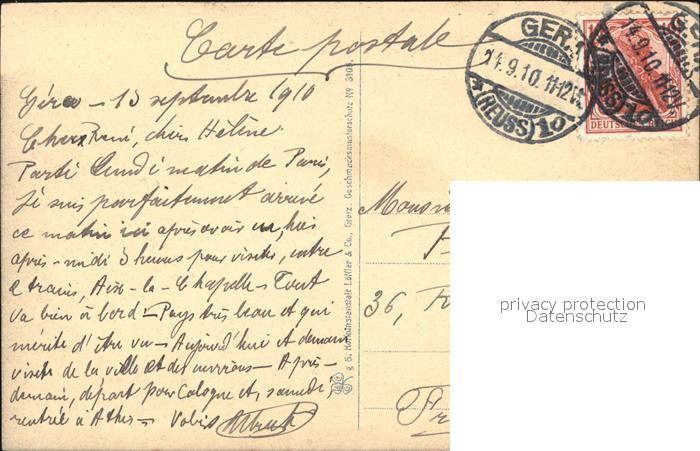 Carte postale
Géra - 13 septembre 1910
Chers René, chère Hélène
Parti lundi matin de Paris,
Je suis parfaitement arrivé
ce matin ici après avoir eu, hier
après-midi 3 heures pour visiter, entre
2 trains, Aix-la-Chapelle - Tout
va bien à bord - Pays très beau et qui
mérite d'être vu - Aujourd'hui et demain
visite de la ville et des environs - Après-
demain, départ pour Cologne et, samedi,
rentrée à Athis -
GERA
14.9.10. 11-12V.
(REUSS) 10
14.9.10. 11-12V.
(REUSS) 10
DEUTSCHES REICH
Löffler & Co., Greiz. Geschmacksmusterschutz No. 3106.
36,
privacy protection
Datenschutz